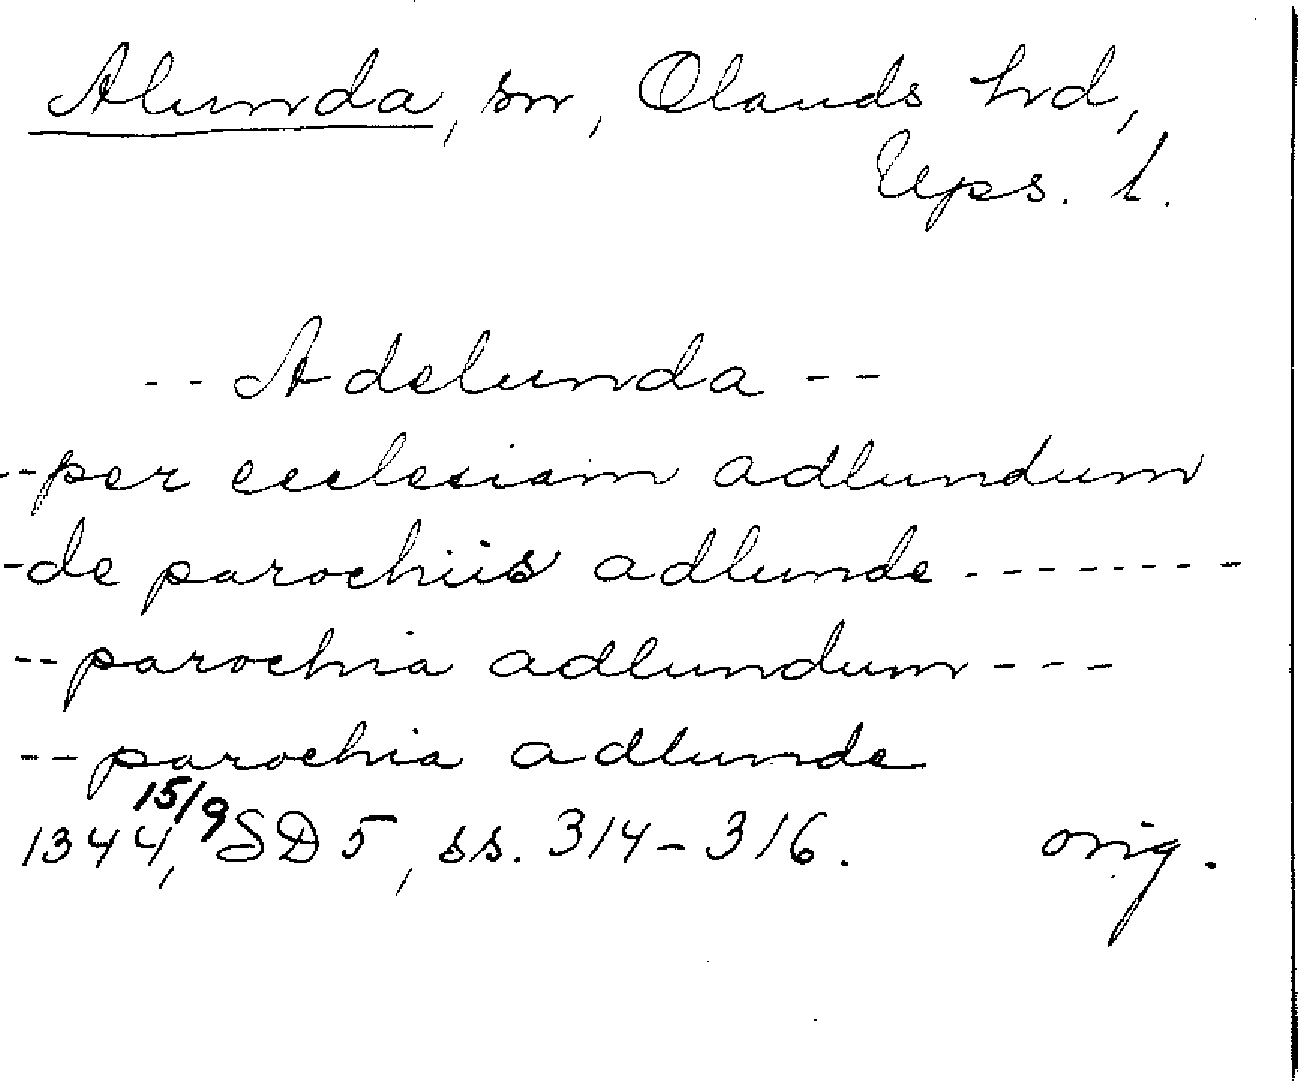 Alunda, sn, Olands hd,
Ups. l.
-- Adelunda --
--per ecclesiam adlundum
-de parochiis adlunde--------
--parochia adlundum---
--parochia adlunde
15/9
1344, SD 5, ss. 314-316. orig.